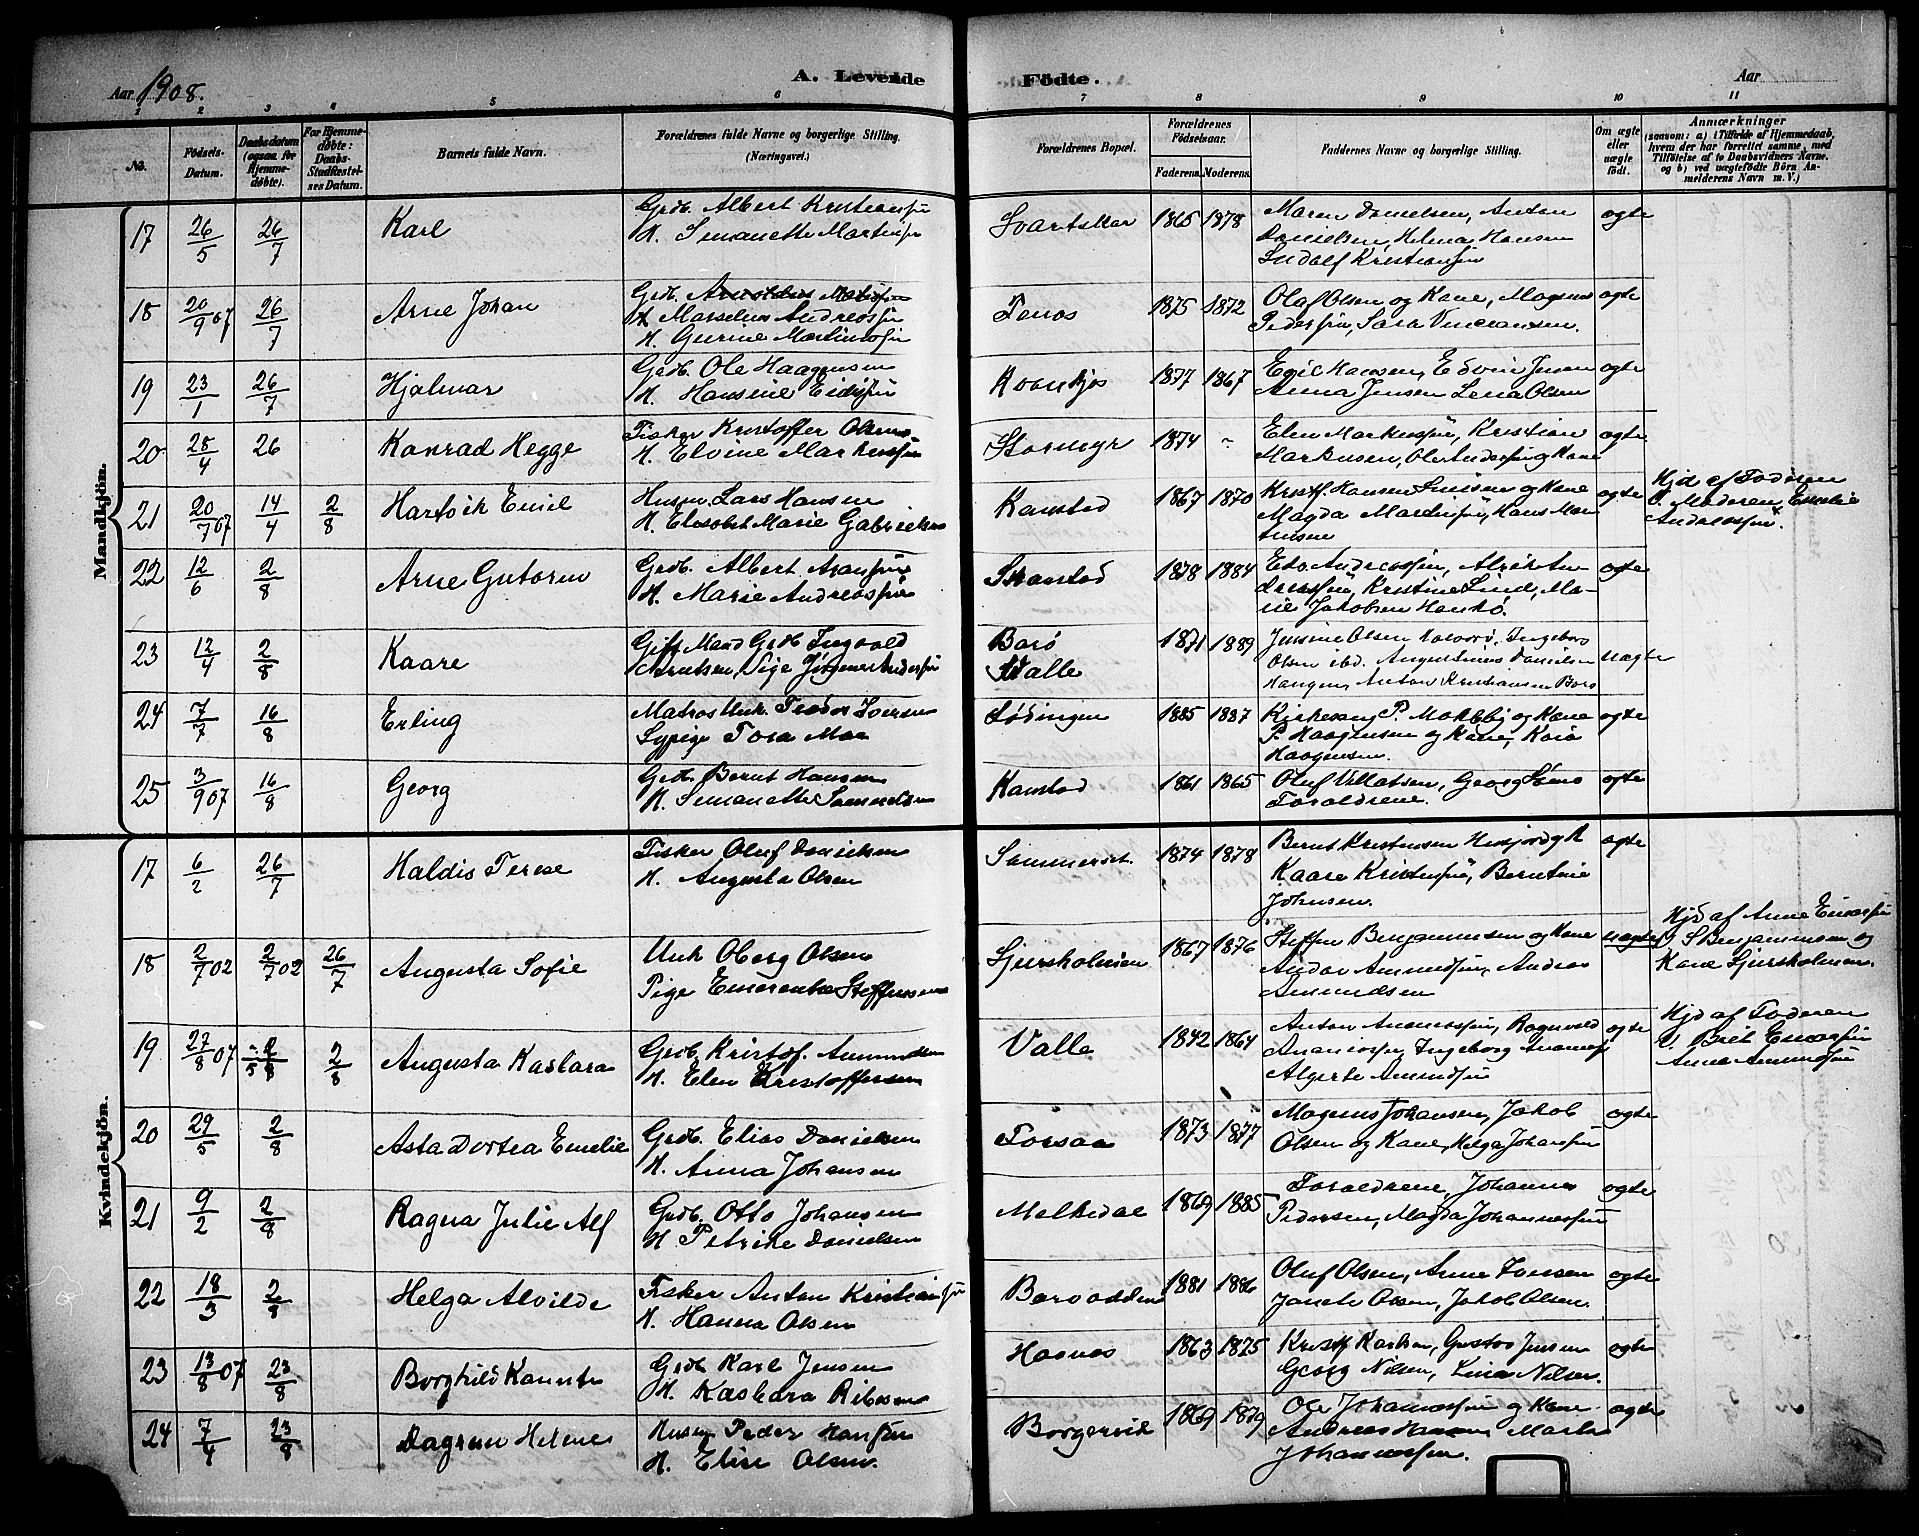 Aar 1908.
A. Levende
Födte.
Aar
1 2 3 4 5 6 7 8 9 10 11
No.
Födsels-
Datum.
Daabsdatum
(ogsaa for
Hjemme-
döbte).
For Hjemme-
döbte:
Daabs-
Stadfæstel-
ses Datum.
Barnets fulde Navn.
Forældrenes fulde Navne og borgerlige Stilling.
(Næringsvei.)
Forældrenes Bopæl.
Forældrenes
Födselsaar.
Faderens. Moderens.
Faddernes Navne og borgerlige Stilling.
Om ægte
eller
uægte
födt.
Anmærkninger
(saasom: a) i Tilfælde af Hjemmedaab,
hvem der har forrettet samme, med
Tilföielse af to Daabsvidners Navne.
og b) ved uægtefödte Börn An-
melderens Navn m. V.)
Mandkjön.
17 26/5 26/7 Karl
Grdb. Albert Kristiansen
H. Simanette Martinsen
Svartskar 1865 1878
Maren Danielsen, Anton
Danielsen, Helena Hansen
Ludolf Kristiansen
ægte
18 20/9 07 26/7 Arne Johan
Grdb.
H. Marselius Andreassen
H. Gurine Martinusen
1875 1872
Olaf Olsen og Kone, Magnus
Pedersen, Sara
ægte
19 23/1 26/7 Hjalmar
Grdb. Ole Haagensen
H. Hansine
1877 1867
Egil Hansen, Edvin Jensen
Anna Jensen Lena Olsen
ægte
20 28/4 26 Konrad Hegge
Fisker Kristoffer Olsen
H. Elvine Markussen
Stormyr 1874 ~
Elen Markussen, Kristian
Markusen, Ole Andersen og Kone
ægte
21 20/7 07 14/4 2/8 Hartvik Emil
Husm. Lars Hansen
H. Elisabet Marie Gabrielsen
Kanstad 1867 1870
Kristf. Hansen og Kone
Magda Martinsen, Hans Mar-
tinsen
ægte
Hjd af Faderen
V. Moderen, Emelie
Andreassen
22 12/6 2/8 Arne Gutorm
Grdb. Albert Aronsen
H. Marie Andreassen
1878 1884
Andreassen, Alrik An-
dreassen, Kristine Lind, Ma-
rie Jakobsen
ægte
23 12/4 2/8 Kaare
Gift Mand Grdb Ingvald
Knutsen, Pige Andersen
Barø
Valle
1871 1889
Jensine Olsen Ingeborg
Olsen ibd. Augustinus Danielsen
Haugen, Anton Kristiansen Barø
uægte
24 7/7 16/8 Erling
Matros Unk. Iversen
Sypige Tora Moe
Lødingen 1885 1887
Kirkesang. P. og Kone
P. Haagensen og Kone, Kaia
Haagensen.
ægte
25 3/9 07 16/8 Georg
Grdb. Bernt Hansen
H. Simanette Samuelsen
Kanstad 1861 1865
Oluf Villatsen, Georg
Forældrene.
ægte
Kvindekjön.
17 6/2 26/7 Haldis Terese
Fisker Oluf Danielsen
H. Augusta Olsen
Sommerset. 1874 1878
Bernt Kristensen
Kaare Kristensen, Berntine
Johnsen.
ægte
18 2/7 02 2/7 02 26/7 Augusta Sofie
Unk Oberg Olsen
Pige Emerentse Steffensen
Sjursholmen 1867 1876
Steffen Benjaminsen og Kone
Amundsen, Andreas
Amundsen
uægte
Hjd af Anne Enoksen
V. S Benjaminsen og
Kone Sjursholmen.
19 27/8 07 2/8 Augusta Kasbara
Grdb. Kristof. Amundsen
H. Elen Kristoffersen
Valle 1842 1864
Anton Ananiassen, Ragnvald
Ananiassen, Ingeborg
Amundsen
ægte
Hjd af Faderen
V. Brit Enoksen
Anna Amundsen
20 29/5 2/8 Asta Dortea Emelie
Grdb. Elias Danielsen
H. Anna Johansen
Forsaa 1873 1877
Magnus Johansen, Jakob
Olsen og Kone, Helga Johansen
ægte
21 9/2 2/8 Ragna Julie Alf
Grdb. Otto Johansen
H. Petrike Danielsen
Melkedal 1869 1885
Forældrene, Johannes
Pedersen, Magda Johannessen
ægte
22 18/3 2/8 Helga Alvilde
Fisker Anton Kristiansen
H. Hanna Olsen
1881 1886
Oluf Olsen, Anne
Olsen, Jakob Olsen.
ægte
23 13/8 07 23/8 Borghild
Grdb Karl Jensen
H. Kasbara
1863 1875
Kristf Karlsen, Gustav Jensen
Georg Nilsen, Lina Nilsen.
ægte
24 7/4 23/8 Dagrun Helene
Husm Peder Hansen
H. Elise Olsen.
Borgervik 1869 1879
Ole Johannessen og Kone
Andreas Hansen
Johannessen.
ægte